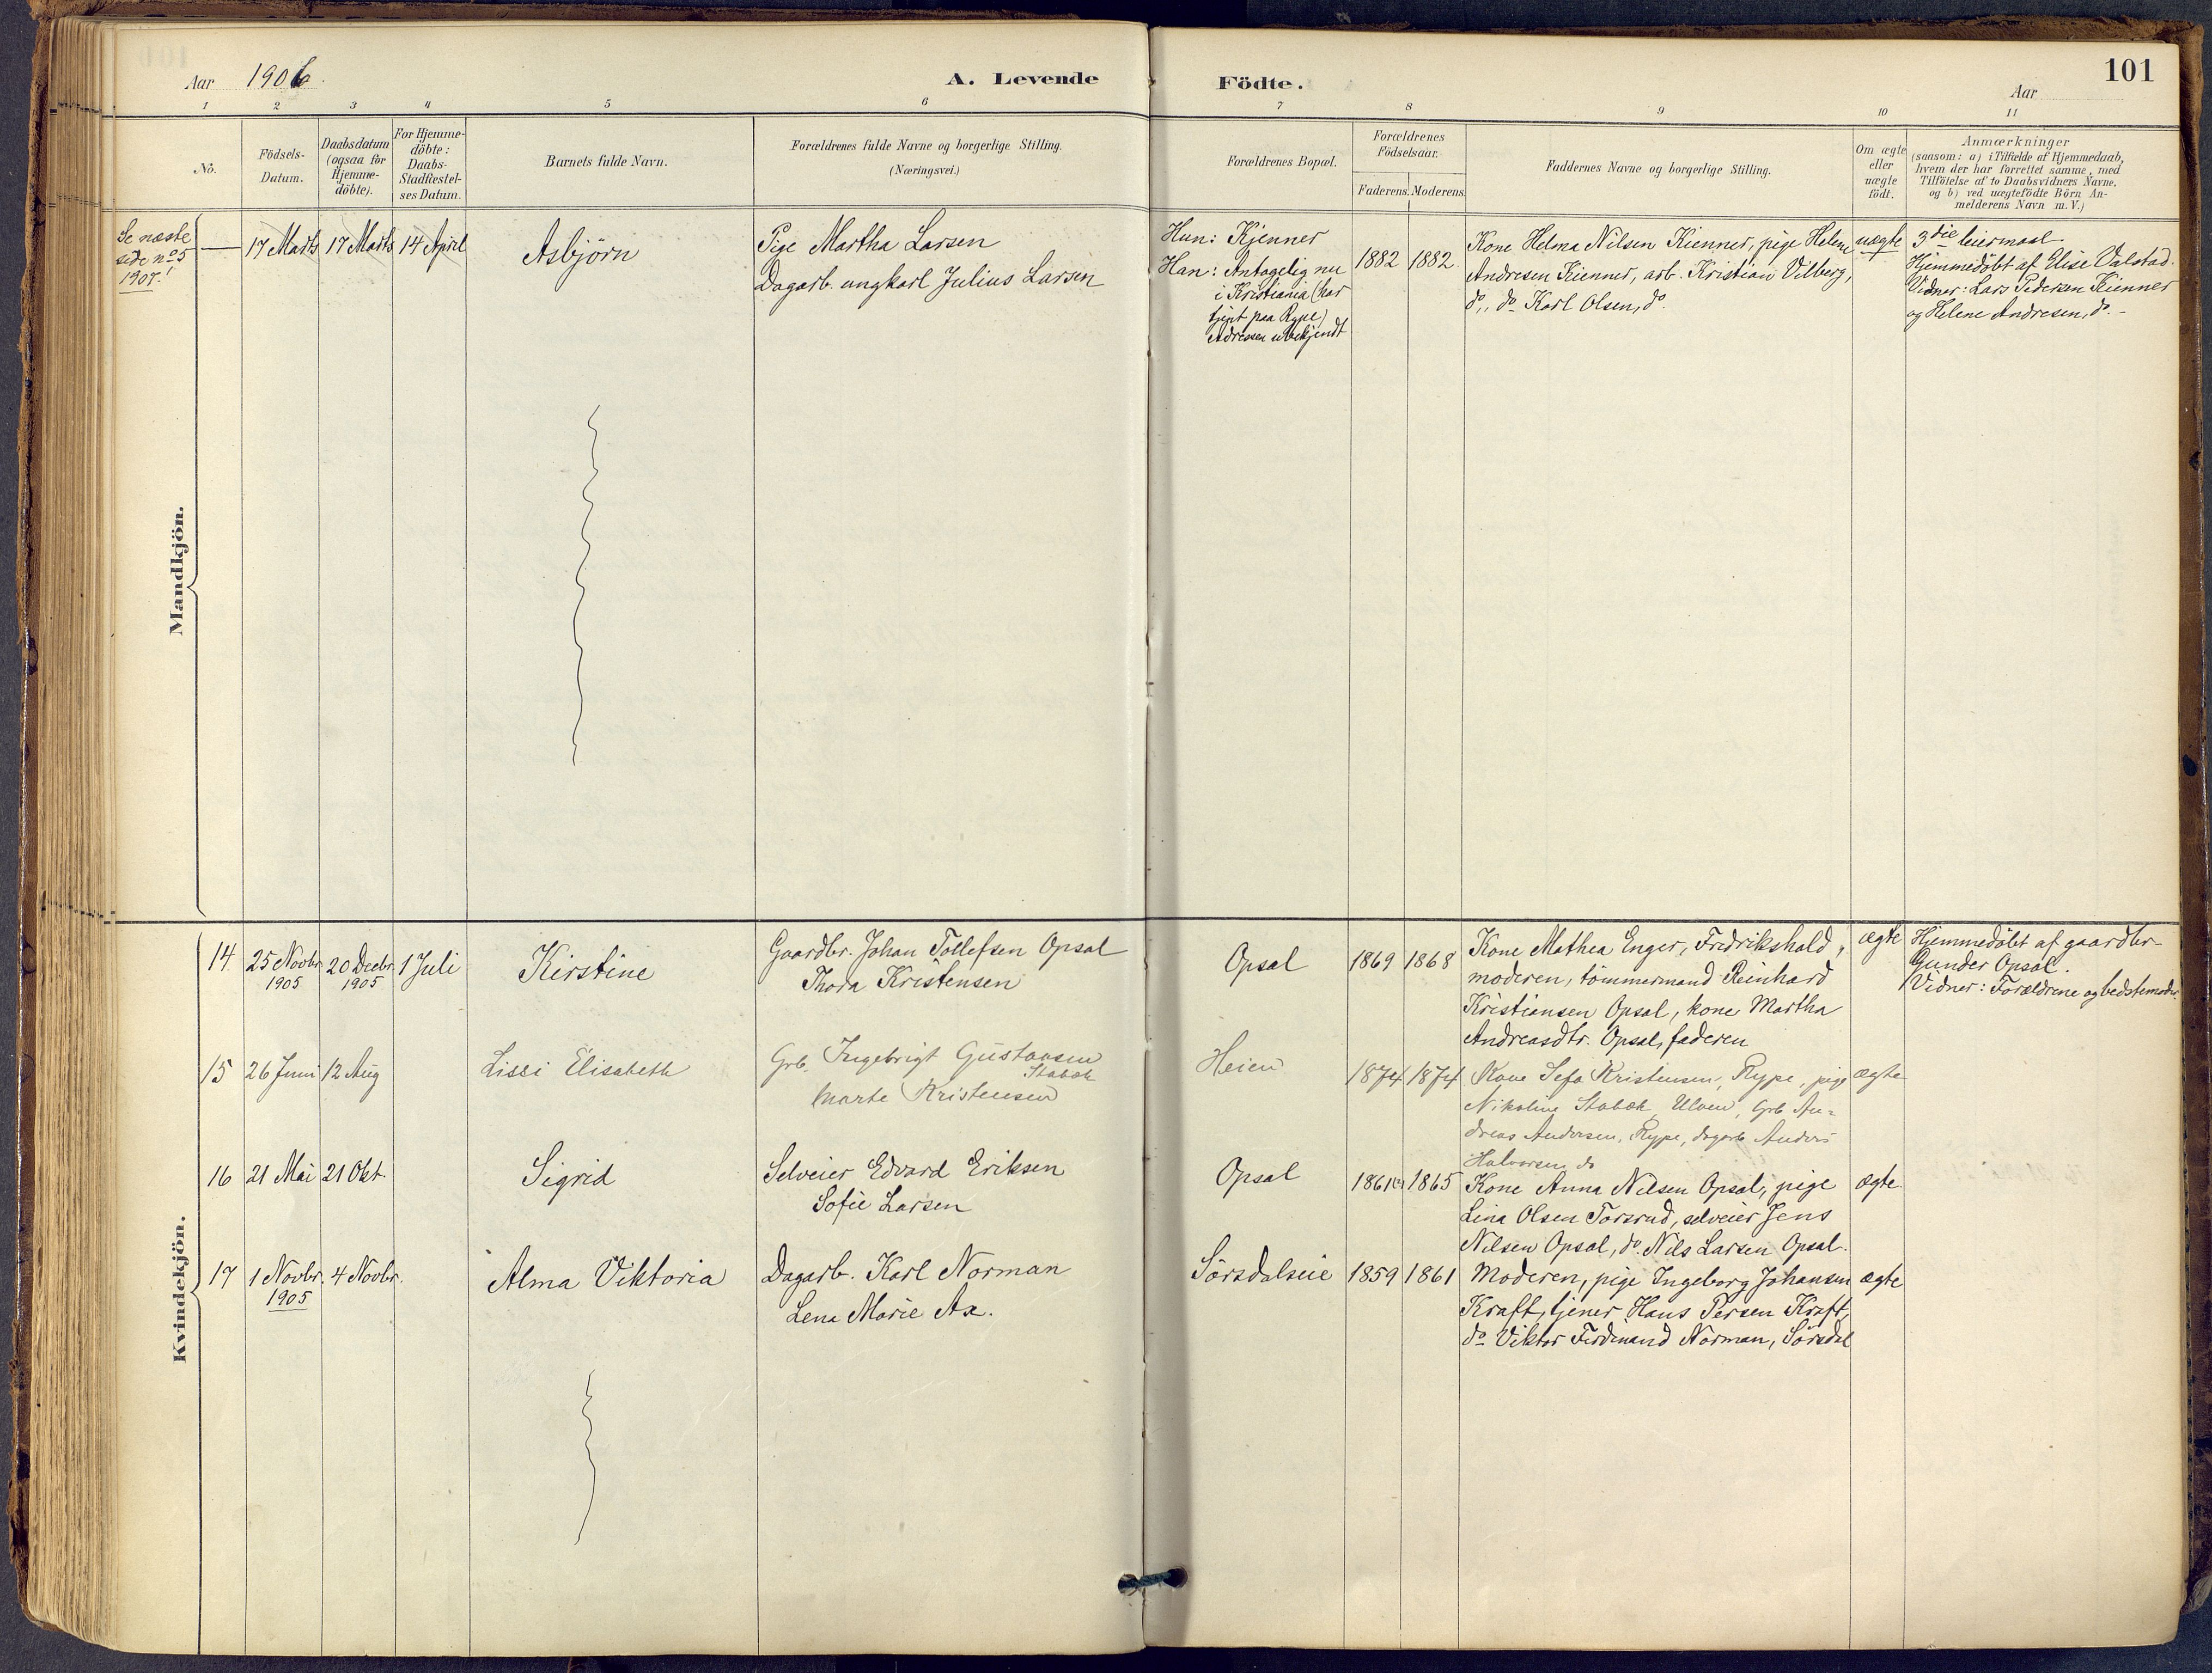 Aar 1906.
A. Levende Födte.
Aar
101
1 2 3 4 5 6 7 8 9 10 11
No.
Födsels-
Datum.
Daabsdatum
(ogsaa for
Hjemme-
döbte).
For Hjemme-
döbte:
Daabs-
Stadfæstel-
ses Datum.
Barnets fulde Navn.
Forældrenes fulde Navne og borgerlige Stilling.
(Næringsvei.)
Forældrenes Bopæl.
Forældrenes
Födselsaar.
Faderens. Moderens.
Faddernes Navne og borgerlige Stilling.
Om ægte
eller
uægte
födt.
Anmærkninger
(saasom: a) i Tilfælde af Hjemmedaab,
hvem der har forrettet samme, med
Tilföielse af to Daabsvidners Navne.
og b) ved uægtefödte Börn An-
melderens Navn m.V.)
Mandkjön.
Se næste
side no 5
1907!
17 Marts 17 Marts 14 April
Asbjörn
Pige Martha Larsen
Dagarb. ungkarl Julius Larsen
Hun: Kjenner
Han: Antagelig nu
i Kristiania (har
tjent paa Rype)
Adressen ubekjendt
1882 1882.
Kone Helma Nilsen Kienner, pige Helene
Andresen Kienner, arb. Kristian Vilberg,
do, do Karl Olsen, do
uægte
3die leiermaal.
Hjemmedöbt af Elise Valstad.
Vidner: Lars Pedersen Kienner
og Helene Andresen, do.-
Kvindekjön.
14. 25 Novbr 20 Decbr 1 Juli
1905 1905
Kirstine
Gaardbr. Johan Tollefsen Opsal
Thora Kristensen
Opsal
1869 1868
Kone Mathea Enger, Fredrikshald,
moderen, tömmermand Reinhard
Kristiansen Opsal, kone Martha
Andreasdtr. Opsal, faderen
ægte
Hjemmedöbt af gaardbr-
Gunder Opsal.
Vidner: Forældrene og bedstemoder.
15 26 Juni 12 Aug
Lissi Elisabeth
Grb. Ingebrigt Gustavsen
Stabæk
Marte Kristensen
Heien
1874 1874
Kone Sefa Kristensen, Rype, pige
Nikoline Stabæk, Ulven, Grb An-
dreas Andersen, Rype, dagarb Anders
Halvorsen do
ægte
16 21 Mai 21 Okt.
Sigrid
Selveier Edvard Eriksen
Sofie Larsen
Opsal
1861 1865
Kone Anna Nilsen Opsal, pige
Lina Olsen Torsrud, selveier Jens
Nilsen Opsal, do. Nils Larsen Opsal.
ægte.
17 1 Novbr. 4 Novbr.
1905
Alma Viktoria
Dagarb. Karl Norman
Lena Marie Ax.
Sörsdalseie
1859 1861
Moderen, pige Ingeborg Johansen
Kraft, tjener Hans Persen Kraft,
do Viktor Ferdinand Norman, Sörsdal
ægte